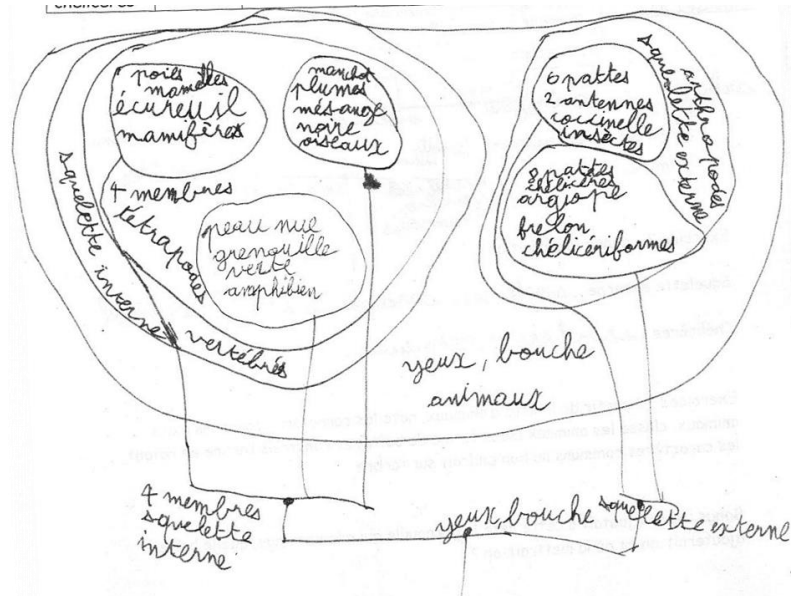 chélicères
poils mamelles
écureuil
mamifères
manchot
plumes
mésange
noire
oiseaux
4 membres
tétrapodes
peau nue
grenouille
verte
amphibien
squelette interne
vertébrés
6 pattes
2 antennes
coccinelle
insectes
8 pattes
chélicères
argiope
frelon
chélicériformes
squelette externe
arthropodes
yeux, bouche
animaux
4 membres
squelette
interne
yeux, bouche
squelette externe